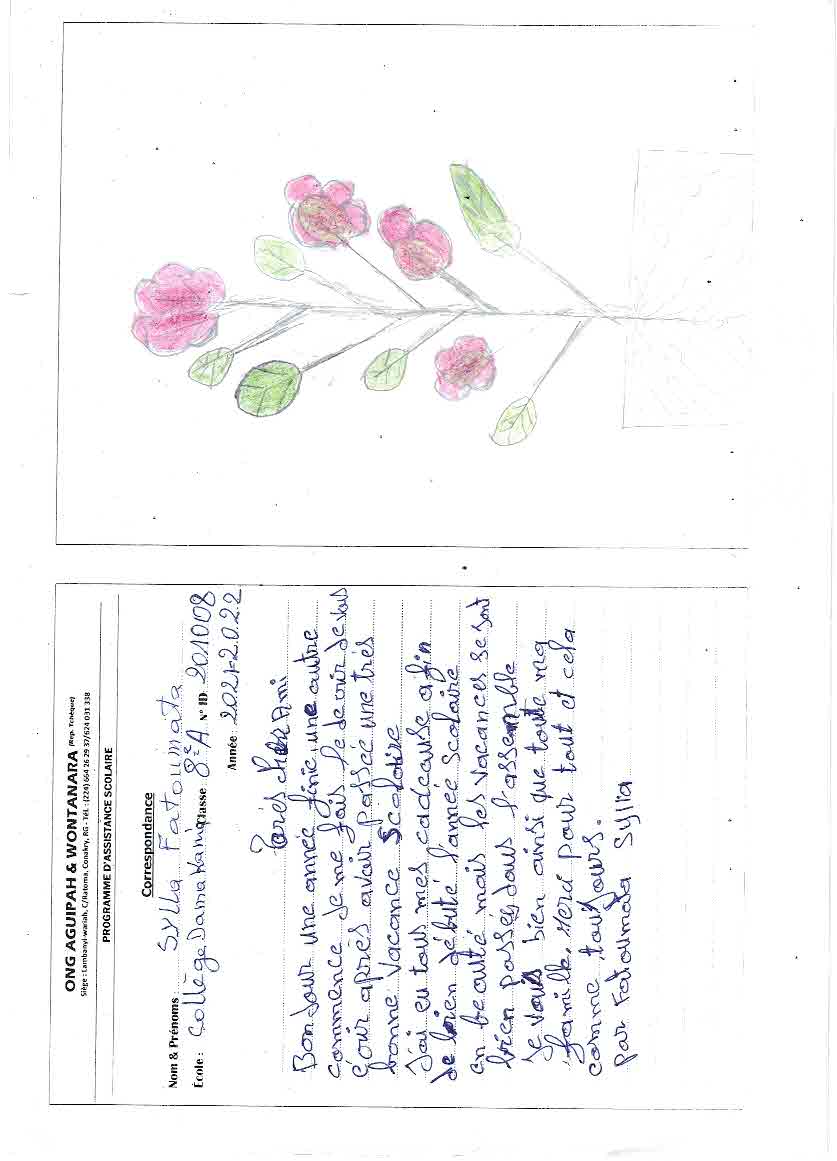 ONG AGUIPAH & WONTANARA (Rep. Kchèque)
Siège : Lambanyi-wariah, C/Ratoma, Conakry, RG - Tél. : (224) 664 26 29 37/624 031 338
PROGRAMME D'ASSISTANCE SCOLAIRE
Correspondance
Nom & Prénoms : Sylla Fatoumata
École : Collège Damakania Classe : 8è A N° ID: 201008
Année : 2021-2022
Très cher Ami
Bonjour une année finie, une autre
commence je me fais le devoir de vous
après avoir passée une très
bonne vacance scolaire
J'ai eu tous mes cadeause afin
de bien débuté l'année scolaire
en beauté mais les vacances se sont
bien passées dans l'assemble
Je vais bien ainsi que toute ma
famille. Merci pour tout et cela
comme toujours.
Par Fatoumata Sylla